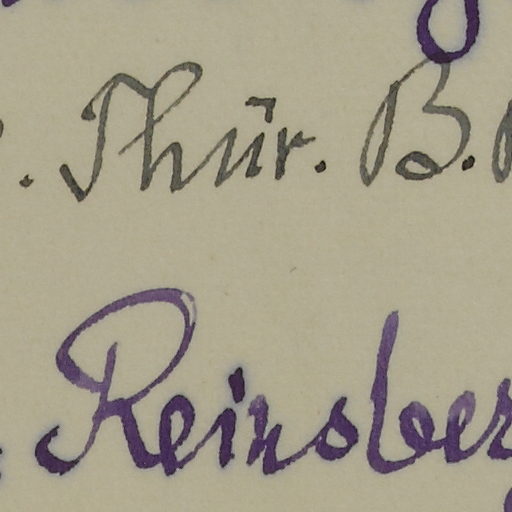 . Thür. B.
Reinsber